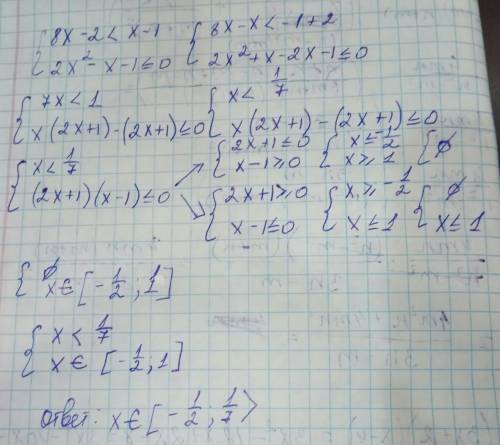 { 8x-2<x-1 { 8x-x<-1+2
{ 2x²-x-1≤0 { 2x²+x-2x-1≤0
{ 7x<1 { x<1/7
{ x(2x+1)-(2x+1)≤0 { x(2x+1)-(2x+1)≤0
{ x<1/7 { 2x+1≤0 { x≤-1/2 { ∅
{ (2x+1)(x-1)≤0 { x-1≥0 { x≥1
{ 2x+1≥0 { x≥-1/2 { ∅
{ x-1≤0 { x≤1 { x≤1
{ ∅
{ x∈[-1/2;1]
{ x<1/7
{ x∈[-1/2;1]
ответ: x∈[-1/2;1/7>